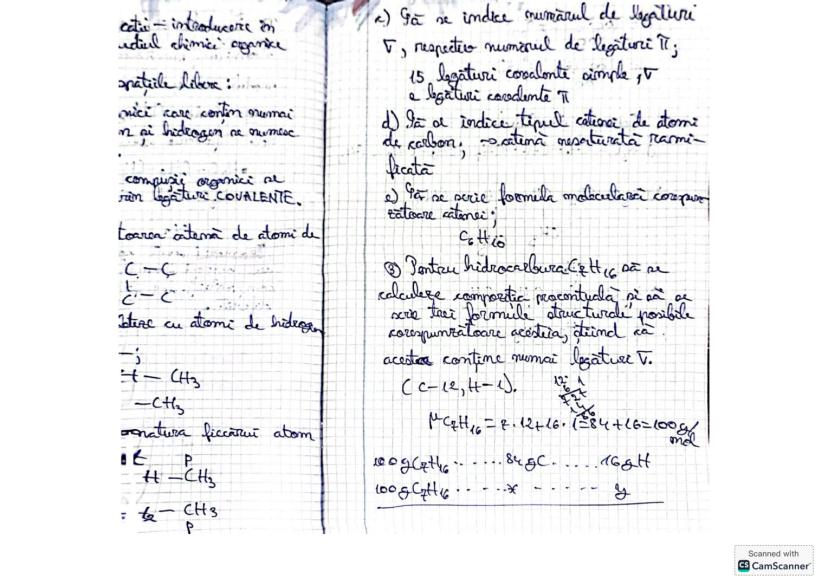 catii - introducere în
chimiei organice
spațiile libere:
care conțin numai
n și hidrogen se numesc
compușii organici se
prin legături COVALENTE.
catenă de atomi de
C - C
C - C
cu atomi de hidrogen
- CH3
- CH3
natura fiecărui atom
P
H - CH3
- CH3
P
c) Să se indice numărul de legături
∇, respectiv numărul de legături π;
15 legături covalente simple, ∇
2 legături covalente π
d) Să se indice tipul catenei de atomi
de carbon; → catenă nesaturată rami-
ficată
e) Să se scrie formula moleculară corespun-
zătoare catenei;
C6H10
③ Pentru hidrocarbura C7H16 să se
calculeze compoziția procentuală și să se
scrie trei formule structurale posibile
corespunzătoare acesteia, știind că
aceasta conține numai legături ∇.
(C-12, H-1).
μC7H16 = 7.12+16.1=84+16=100g/
mol
100gC7H16 ..... 84gC ..... 16gH
100gC7H16 ..... x ..... y
Scanned with
CS CamScanner